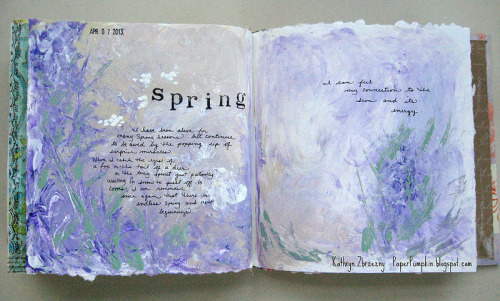 APR 07 2013
spring
I have been alive for
many Spring seasons but continue
to be awed by the popping up of
surprise miracles.
When I catch the eyes of
a fox or the tail of a deer
or the tiny sprout just patiently
waiting for snow to quell off its
I am reminded
once again that there is
endless Spring and new
beginnings
I can feel
my connection to the
sun and its
energy.
Kathryn Zbrzezny PaperPumpkin.blogspot.com